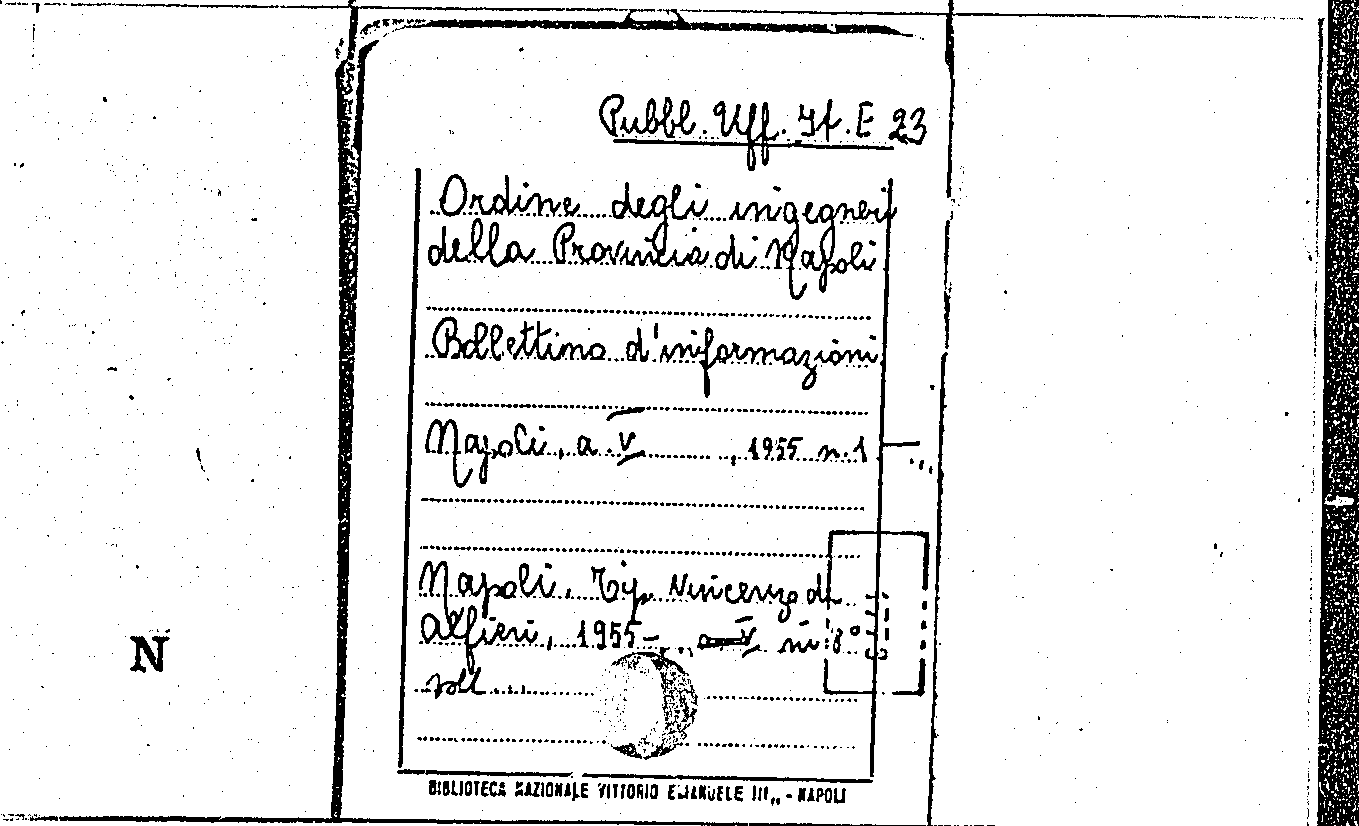 Pubbl. Uff. It. E 23
Ordine degli ingegneri
della Provincia di Napoli
Bollettino d'informazioni
Napoli, a. V , 1955 n. 1
Napoli, Tip. Vincenzo di
Alfieri, 1955- , a V in 8°
voll...
N
BIBLIOTECA NAZIONALE VITTORIO EMANUELE III,, - NAPOLI